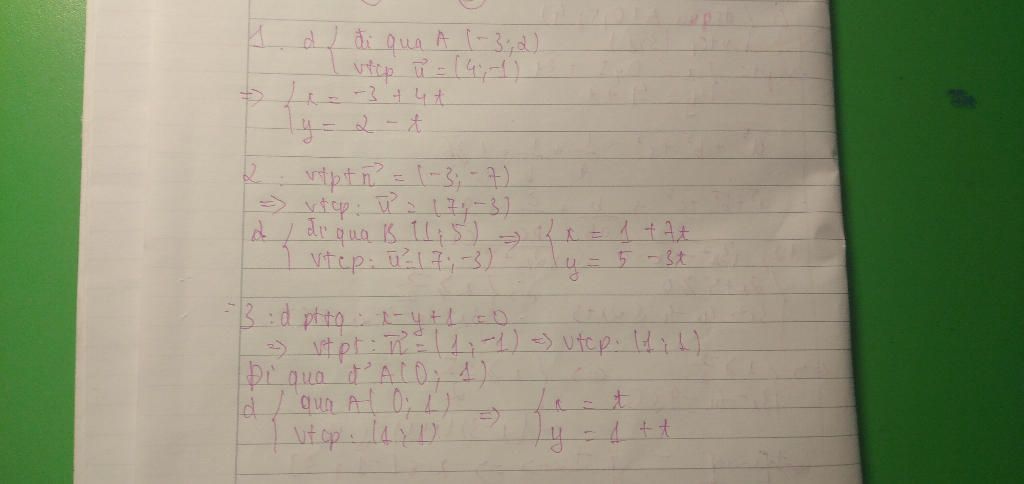 1. d { đi qua A (-3; 2)
vtcp u⃗ = (4; -1)
=> { x = -3 + 4t
y = 2 - t
2. vtpt n⃗ = (-3; -7)
=> vtcp: u⃗ = (7; -3)
d { đi qua B (1; 5) => { x = 1 + 7t
vtcp: u⃗ = (7; -3) y = 5 - 3t
3: d pttq: x - y + 1 = 0
=> vtpt: n⃗ = (1; -1) => vtcp: (1; 1)
Đi qua đ' A(0; 1)
d { qua A( 0; 1) => { x = t
vtcp: (1; 1) y = 1 + t